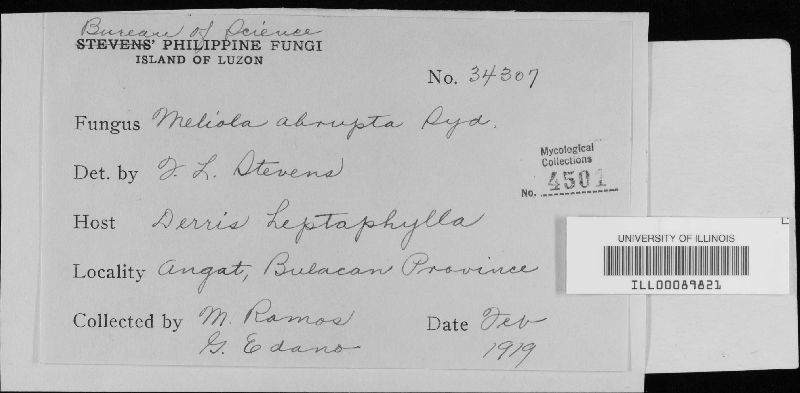 Bureau of Science
STEVENS' PHILIPPINE FUNGI
ISLAND OF LUZON
No. 34307
Fungus Meliola abrupta Syd.
Det. by F. L. Stevens
Mycological
Collections
No. 4501
Host Derris Leptaphylla
UNIVERSITY OF ILLINOIS
ILL00089821
Locality Angat, Bulacan Province
Collected by M. Ramos
G. Edano
Date Feb
1919